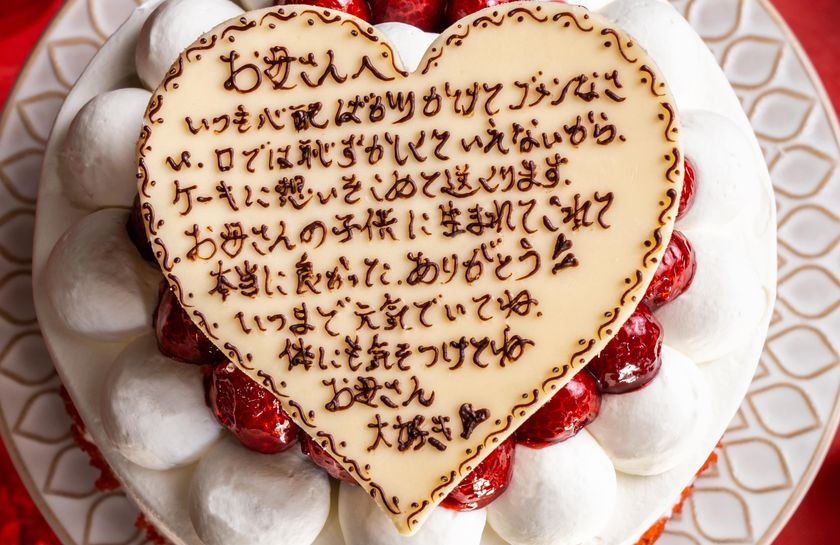 お母さんへ
いつも心配ばかりかけてゴメンなさ
い.口では恥ずかしくていえないから.
ケーキに想いをこめて送くります.
お母さんの子供に生まれてこれて
本当に良かった.ありがとう
いつまで元気でいてね.
体にも気をつけてね
お母さん
大好き